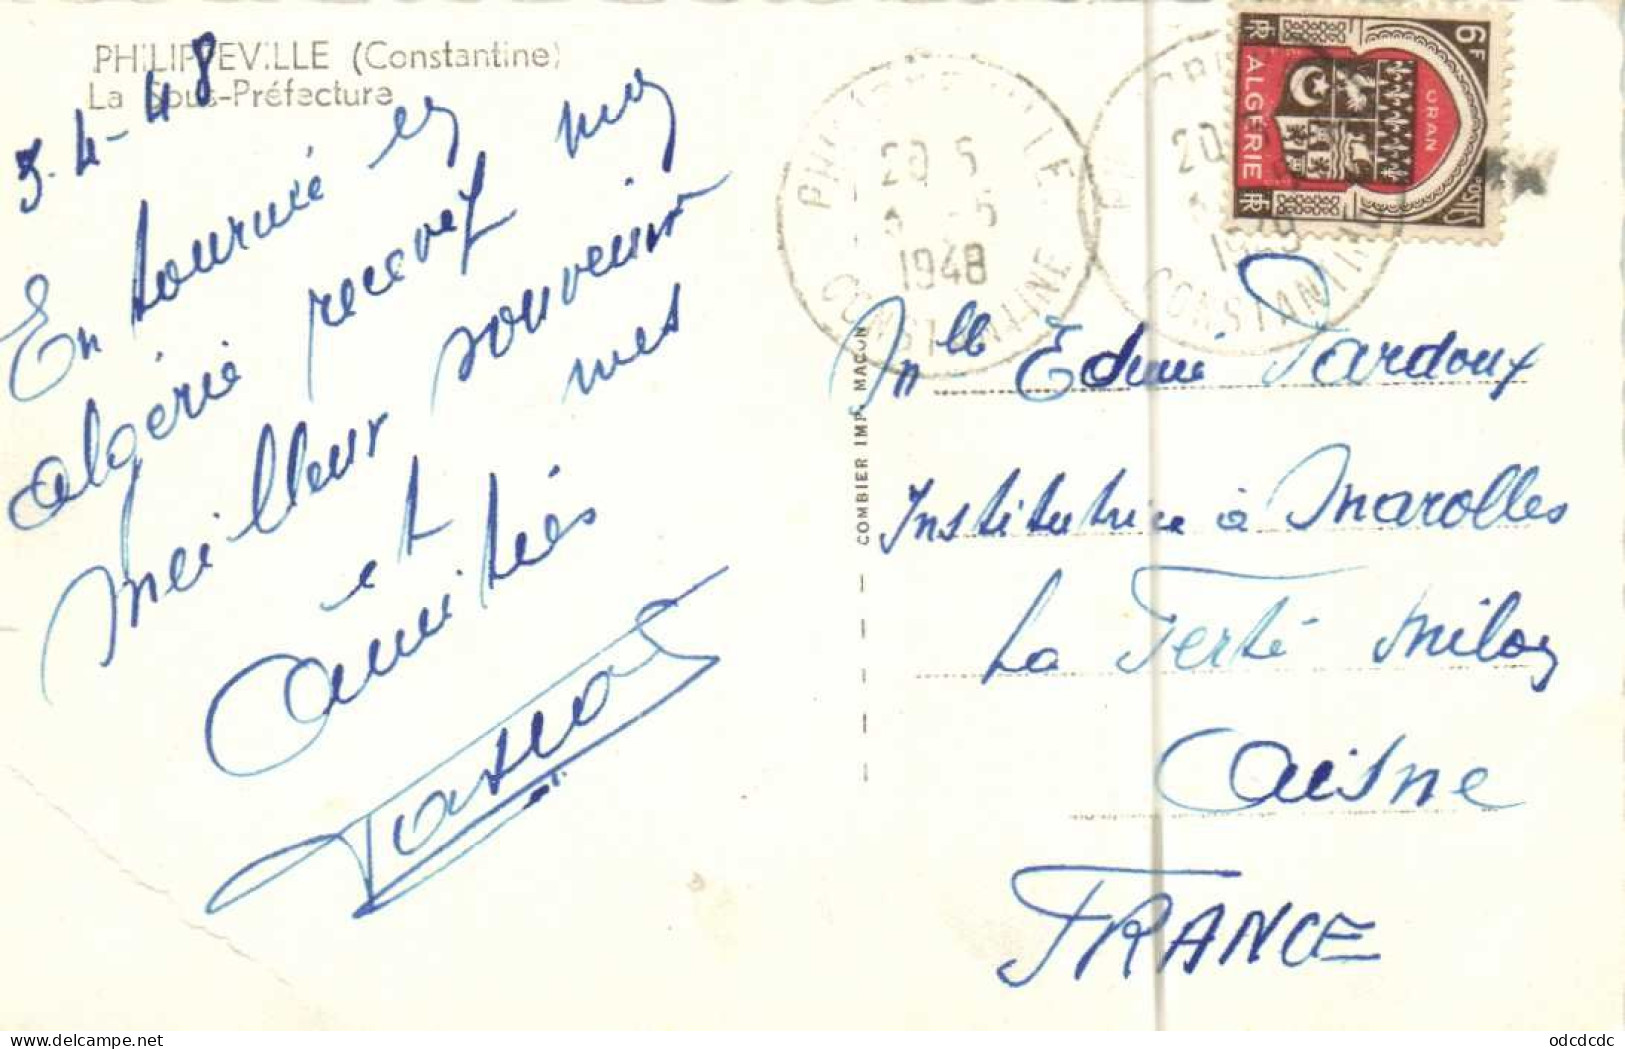 PHILIPPEVILLE (Constantine)
La Sous-Préfecture
3-4-48
En tournée en
algérie recevez mes
meilleur souvenir
et mes
amitiés
COMBIER IMP. MACON
PHILIPPEVILLE
20 5
5
1948
CONSTANTINE
20
1948
CONSTANTINE
6F
ORAN
ALGÉRIE
POSTES
RF
RF
Mlle Edmée Pardoux
Institutrice à Marolles
La Ferté Milon
Aisne
FRANCE
odcdcdc